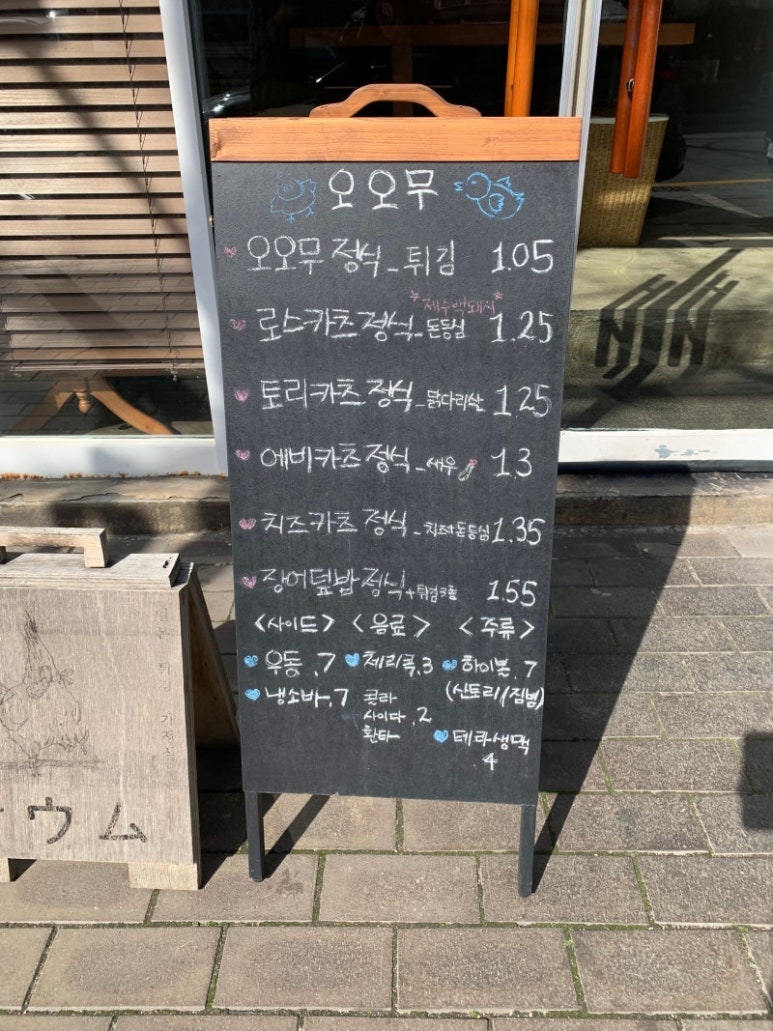 오오무
오오무 정식 - 튀김 1.05
*제주백돼지*
로스카츠 정식 - 돈등심 1.25
토리카츠 정식 - 닭다리살 1.25
에비카츠 정식 - 새우 1.3
치즈카츠 정식 - 치즈+돈등심 1.35
장어덮밥 정식 + 튀김3종 1.55
<사이드> <음료> <주류>
우동 .7 체리콕 .3 하이볼 .7
냉소바 .7 콜라 (산토리/짐빔)
사이다 .2
환타 테라생맥
.4
ウム